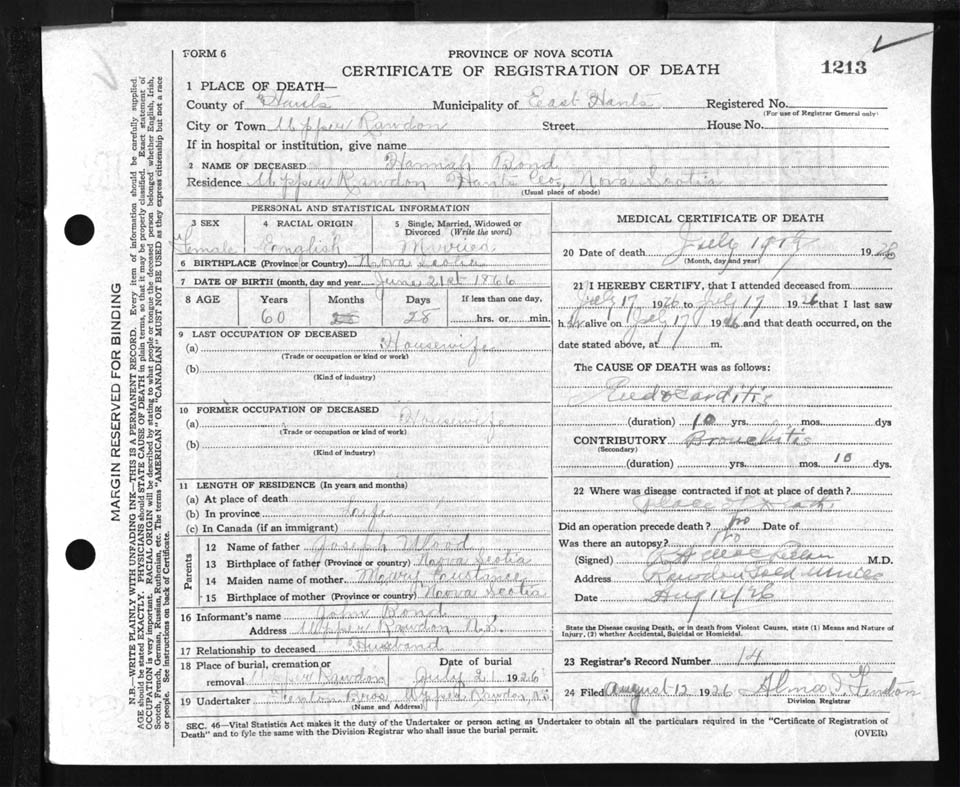 FORM 6
PROVINCE OF NOVA SCOTIA
CERTIFICATE OF REGISTRATION OF DEATH
1213
1 PLACE OF DEATH—
County of Hants Municipality of East Hants Registered No.
(For use of Registrar General only)
City or Town Upper Rawdon Street House No.
If in hospital or institution, give name
2 NAME OF DECEASED Hannah Bond
Residence Upper Rawdon Hants Co, Nova Scotia
(Usual place of abode)
PERSONAL AND STATISTICAL INFORMATION
3 SEX 4 RACIAL ORIGIN 5 Single, Married, Widowed or Divorced (Write the word)
Female English Married
6 BIRTHPLACE (Province or Country) Nova Scotia
7 DATE OF BIRTH (month, day and year June 21st 1866
8 AGE Years Months Days If less than one day,
60 28 hrs. or min.
9 LAST OCCUPATION OF DECEASED
(a) Housewife
(Trade or occupation or kind or work)
(b)
(Kind of industry)
10 FORMER OCCUPATION OF DECEASED
(a) Housewife
(Trade or occupation or kind of work)
(b)
(Kind of industry)
11 LENGTH OF RESIDENCE (In years and months)
(a) At place of death
(b) In province Life
(c) In Canada (if an immigrant)
Parents
12 Name of father Joseph Wood
13 Birthplace of father (Province or country) Nova Scotia
14 Maiden name of mother Mary
15 Birthplace of mother (Province or country) Nova Scotia
16 Informant's name John Bond
Address Upper Rawdon N.S.
17 Relationship to deceased Husband
18 Place of burial, cremation or removal Upper Rawdon Date of burial July 21 1926
19 Undertaker Fenton Bros Upper Rawdon N.S.
(Name and Address)
MEDICAL CERTIFICATE OF DEATH
20 DATE OF DEATH July 19 1926
(Month, day and year)
21 I HEREBY CERTIFY, that I attended deceased from
July 17 1926 to July 17 1926 that I last saw
h er alive on July 17 1926 and that death occurred, on the
date stated above, at m.
The CAUSE OF DEATH was as follows:
Endocarditis
(duration) 10 yrs. mos. dys
CONTRIBUTORY Bronchitis
(Secondary)
(duration) yrs. mos. 10 dys.
22 Where was disease contracted if not at place of death?
Place of Death
Did an operation precede death? No Date of
Was there an autopsy? No
(Signed) M.D.
Address Rawdon Gold Mines
Date Aug 12/26
State the Disease causing Death, or in death from Violent Causes, state (1) Means and Nature of
Injury, (2) whether Accidental, Suicidal or Homicidal.
23 Registrar's Record Number 14
24 Filed August 12 1926 Alma I. Fenton
Division Registrar
SEC. 46—Vital Statistics Act makes it the duty of the Undertaker or person acting as Undertaker to obtain all the particulars required in the "Certificate of Registration of
Death" and to fyle the same with the Division Registrar who shall issue the burial permit.
(OVER)
MARGIN RESERVED FOR BINDING
N.B.—WRITE PLAINLY WITH UNFADING INK—THIS IS A PERMANENT RECORD. Every item of information should be carefully supplied.
AGE should be stated EXACTLY. PHYSICIANS should STATE CAUSE OF DEATH in plain terms, so that it may be properly classified. Exact statement of
OCCUPATION is very important. RACIAL ORIGIN will be described by stating to what people or tongue the deceased person belonged whether English, Irish,
Scotch, French, German, Russian, Ruthenian, etc. The terms "AMERICAN" OR "CANADIAN" MUST NOT BE USED as they express citizenship but not a race
or people. See instructions on back of Certificate.